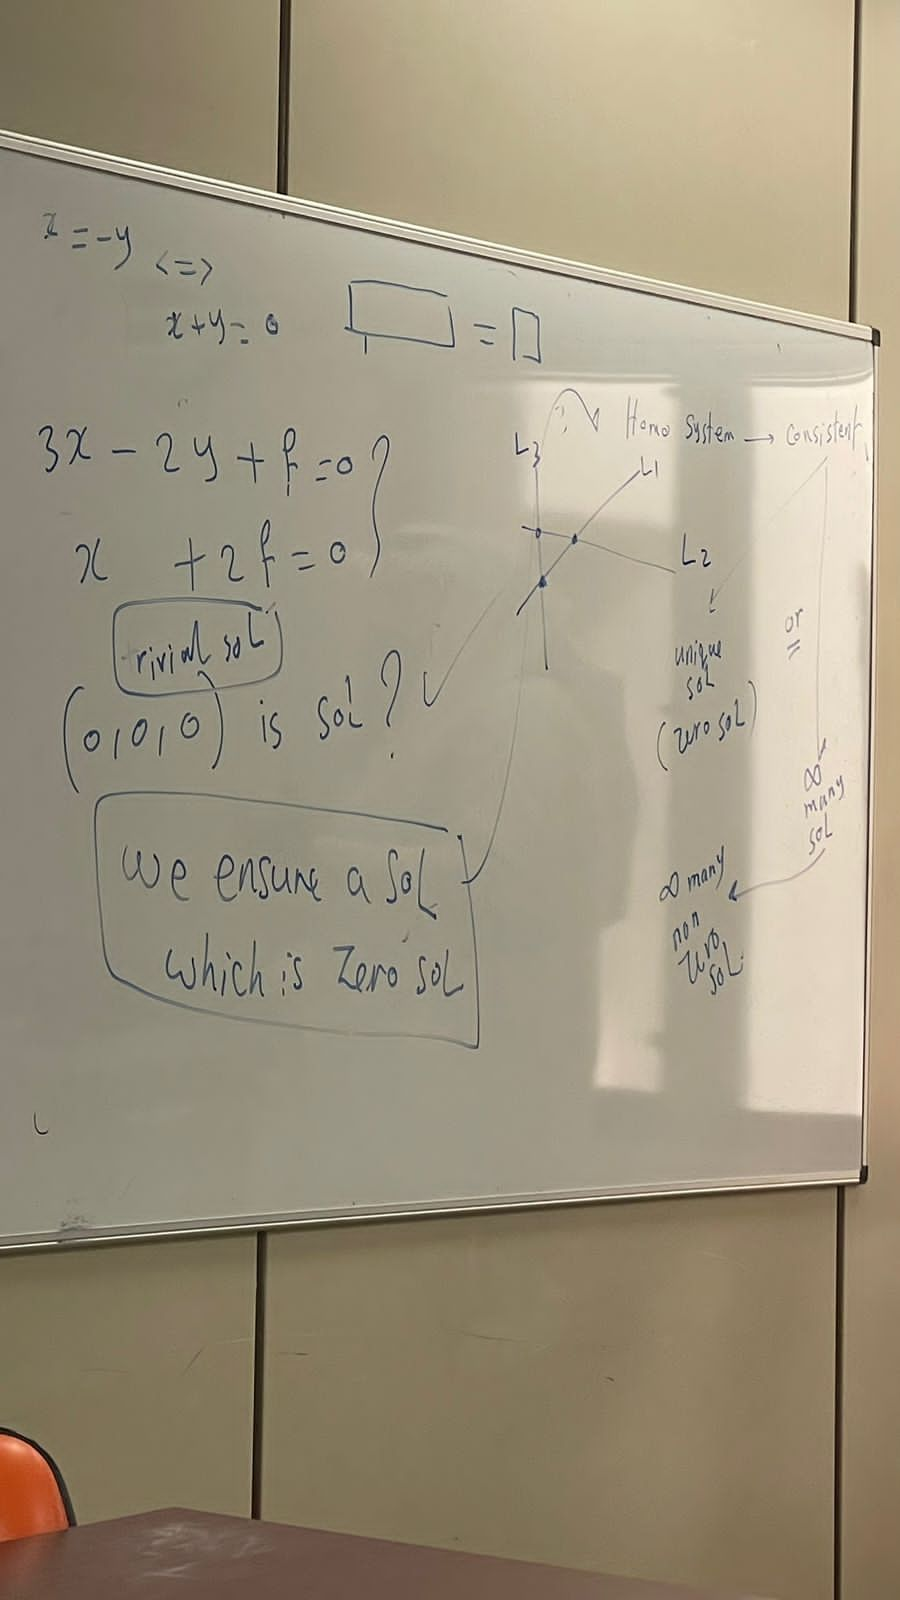 x = -y <=>
x+y = 0
▭ = ▯
3x - 2y + f = 0
x + 2f = 0
trivial sol
(0,0,0) is sol?
we ensure a sol
which is zero sol
L3
L1
L2
Homo System → Consistent
unique
sol
(zero sol)
or
∞
many
sol
∞ many
non
zero
sol